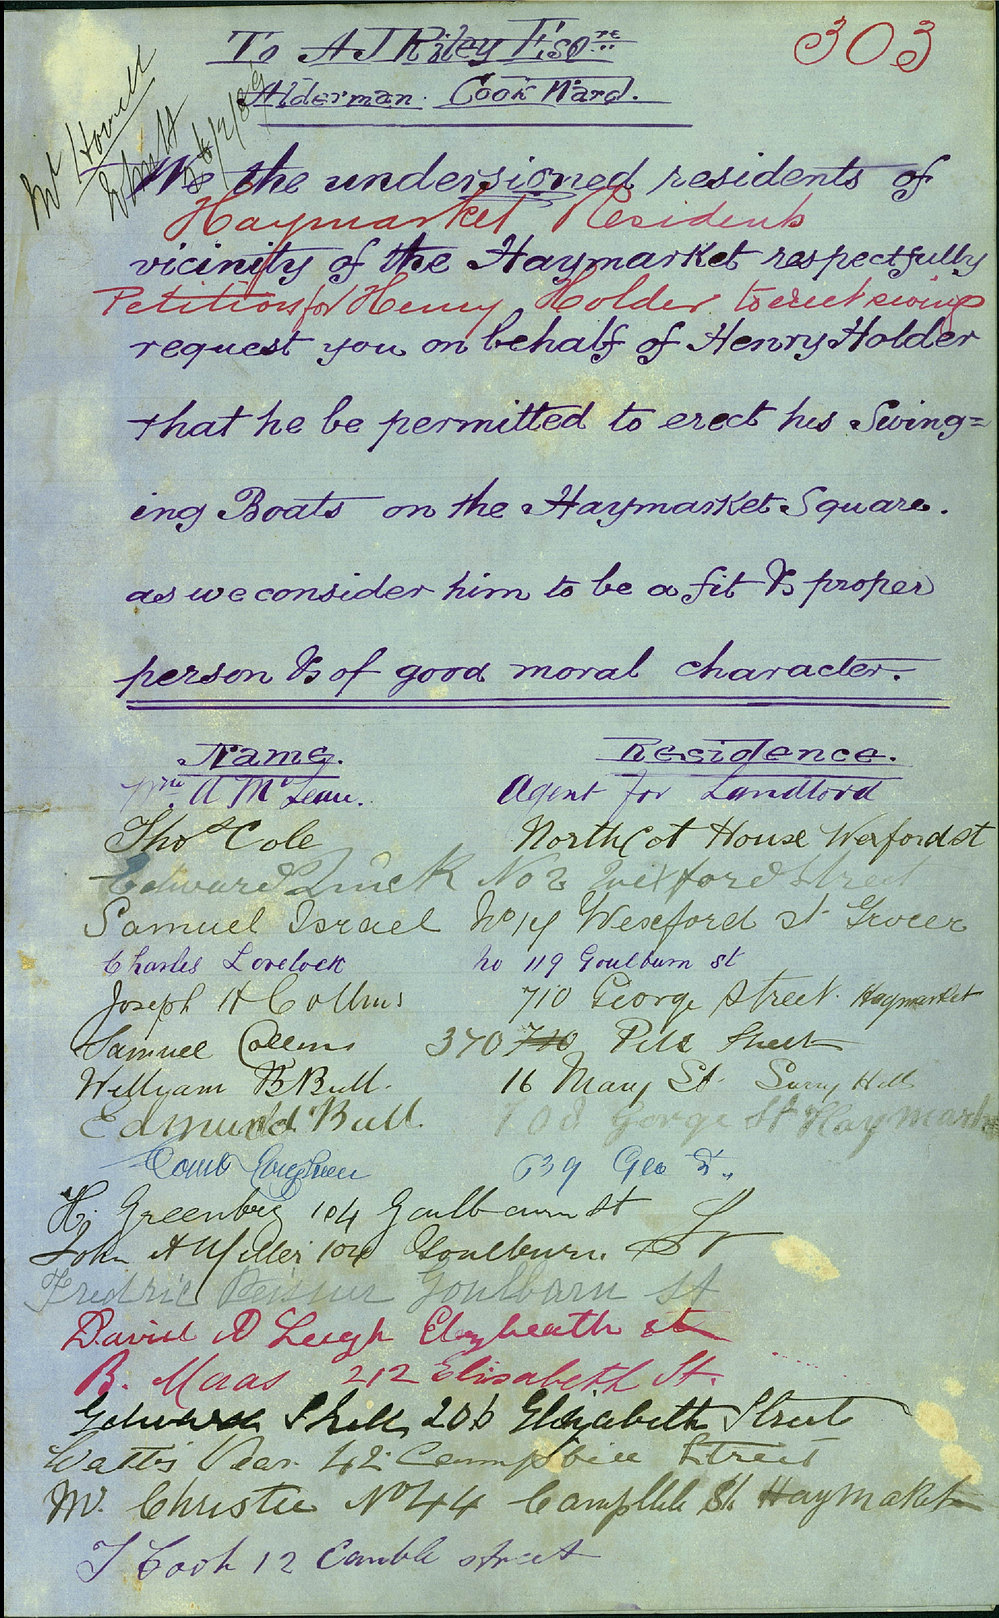 To A J Riley Esqre
303
Alderman. Cook Ward.
Mr Howell
26/2/89
We the undersigned residents of
Haymarket Residents
vicinity of the Haymarket respectfully
Petition for Henry Holder to erect swings
request you on behalf of Henry Holder
that he be permitted to erect his Swing=
ing Boats on the Haymarket Square.
as we consider him to be a fit & proper
person & of good moral character.
Name. Residence.
Wm A McLean. Agent for Landlord
Thos Cole Northcot House Wexford st
Edward Quick No 2 Wexford Street
Samuel Israel No 14 Wexford St Grocer
Charles Lovelock no 119 Goulburn st
Joseph H Collins 710 George Street Haymarket
Samuel Collins 370 710 Pitt Street
William B Bull. 16 Mary St Surry Hills
Edmund Bull. 708 Gorge St Haymarket
639 Geo St.
H. Greenberg 104 Goulburn St
John A Miller 104 Goulburn St
Fredric Goulbarn St
David D Leigh Elizbeath st
B. Maas 212 Elisabeth St.
Edward Shell 206 Elizabeth Street
Watts 42 Campbell Street
M. Christie No 44 Campbell St Haymaket
T Cook 12 Camble street